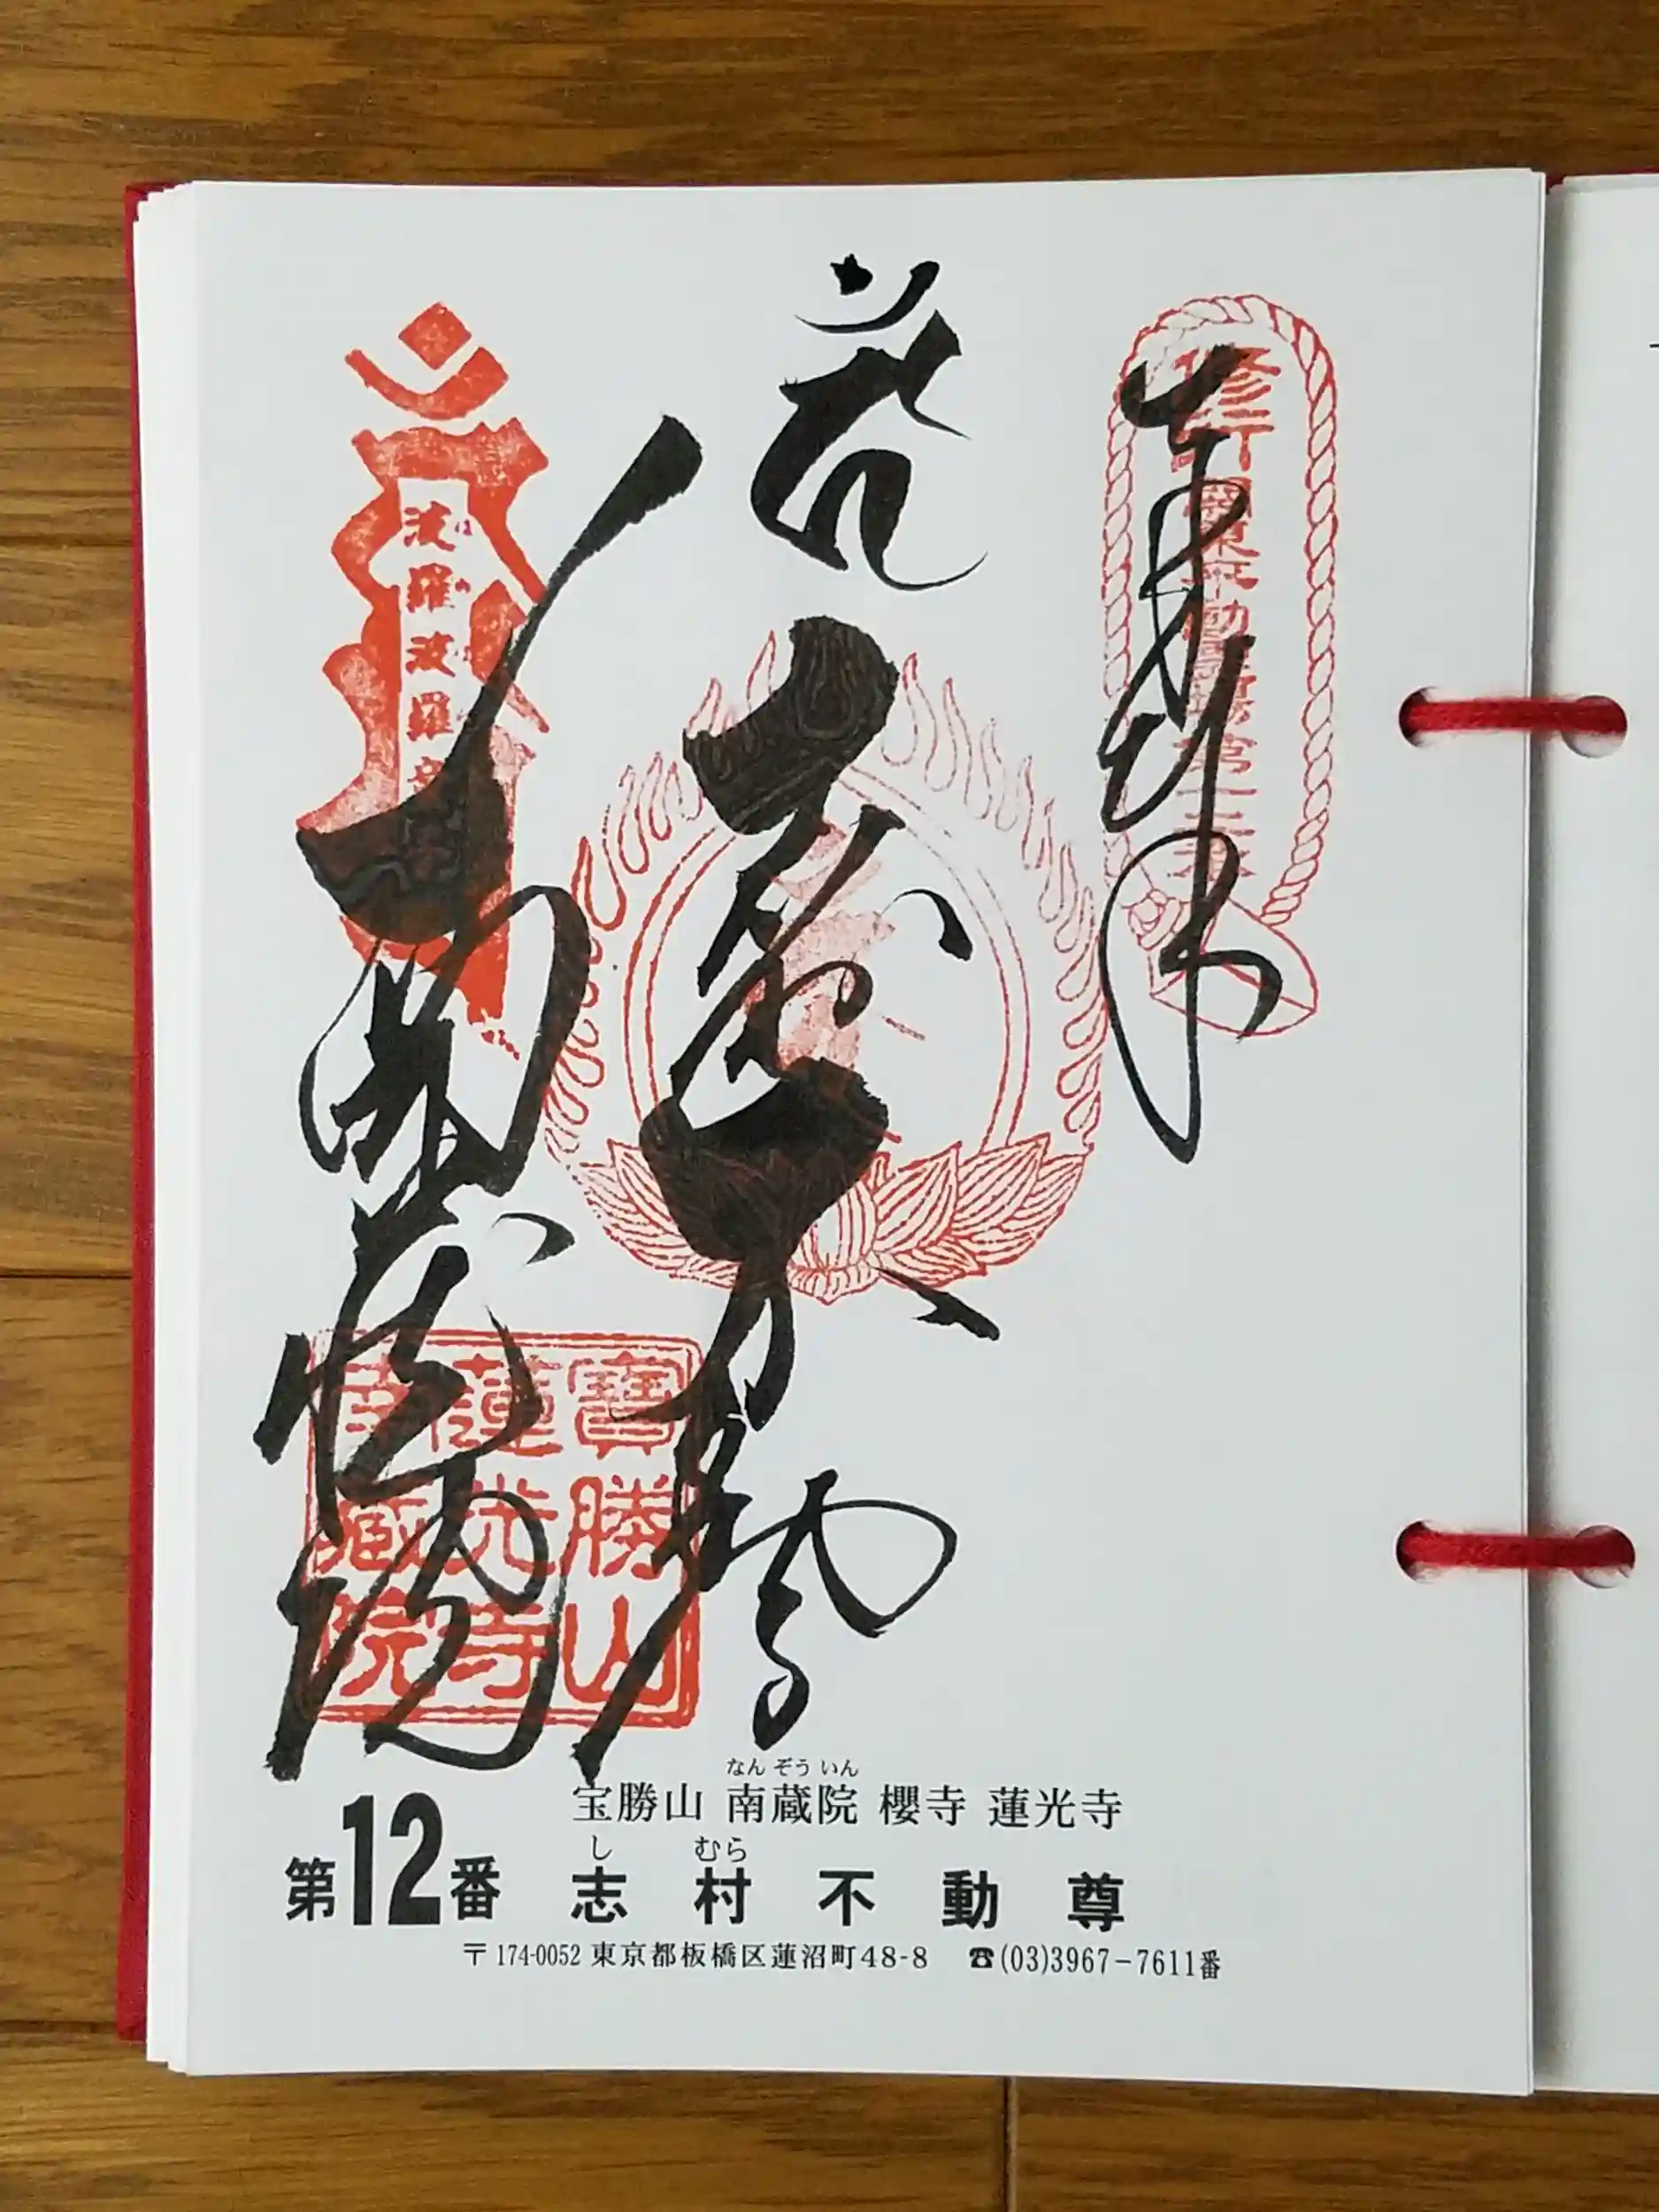 奉拝
修行
関東不動霊場第十二番
志村不動尊
南蔵院
波羅波羅
寶勝山
蓮光寺
南蔵院
なんぞういん
宝勝山 南蔵院 櫻寺 蓮光寺
し むら
第12番 志村不動尊
〒174-0052 東京都板橋区蓮沼町48-8 ☎(03)3967-7611番